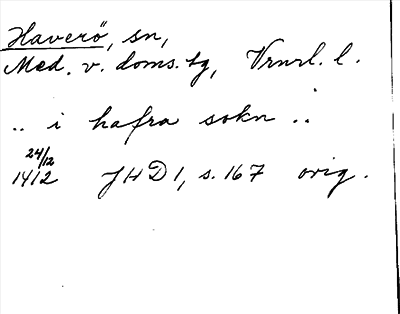 Haverö, sn,
Med. v. doms. tg, Vrnrl. l.
.. i hafra sokn ..
24/12
1412 JHD 1, s. 167 orig.